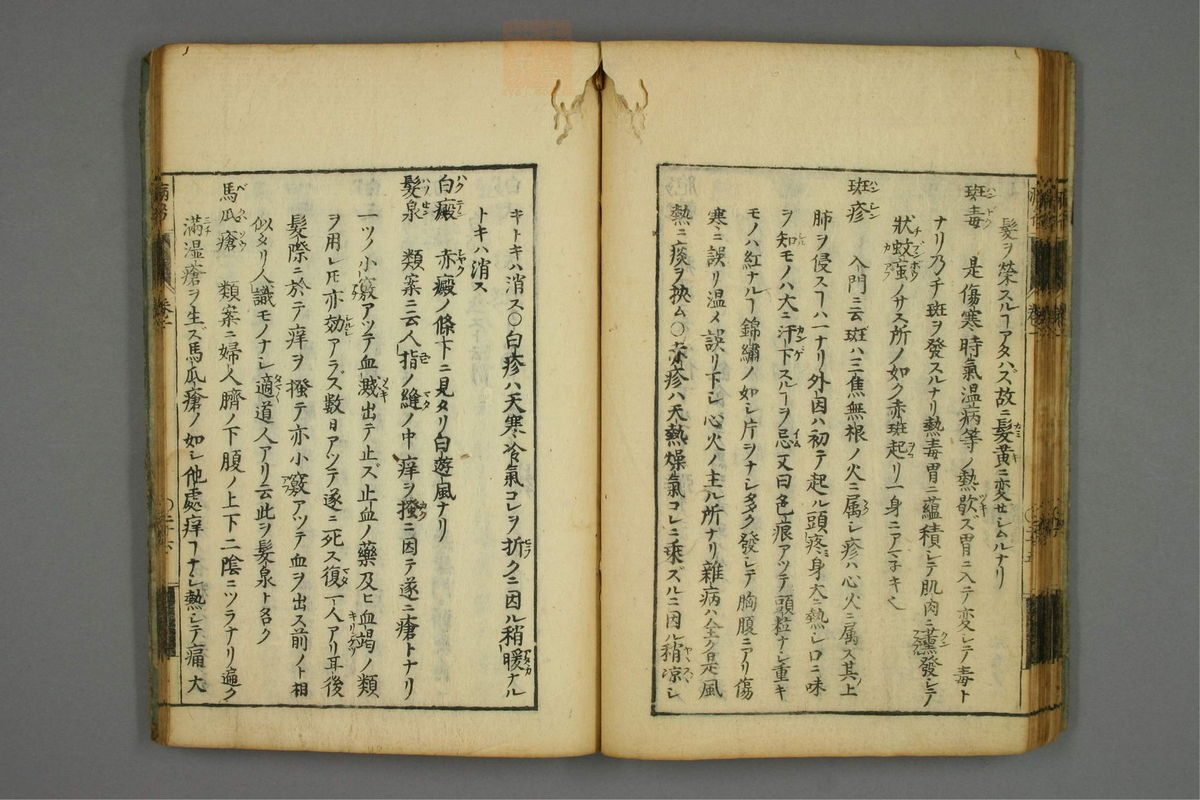 髪ヲ榮スルヿアタハズ故ニ髪黄ニ変セシムルナリ
斑毒 是傷寒時氣温病等ノ熱歇ズ胃ニ入テ変シテ毒ト
ナリ乃チ斑ヲ發スルナリ熱毒胃ニ蘊積シテ肌肉ニ薫發シテ
狀蚊䖟ノサス所ノ如ク赤斑起リ一身ニアマ子キ也
斑疹 入門ニ云斑ハ三焦無根ノ火ニ属シ疹ハ心火ニ属ス其上
肺ヲ侵スヿハ一ナリ外因ハ初テ起ル頭疼身大ニ熱シ口ニ味
ヲ知モノハ大ニ汗下スルヿヲ忌又曰色痕アツテ頭粒ナシ重キ
モノハ紅ナルヿ錦繡ノ如シ片ヲナシ多ク發シテ胸腹ニアリ傷
寒ニ誤リ温メ誤リ下シ心火ノ主ル所ナリ雜病ハ全ク是風
熱ニ痰ヲ挾ム○赤疹ハ天熱燥氣コレニ乘ズルニ因ル稍凉シ
キトキハ消ス○白疹ハ天寒冷氣コレヲ折クニ因ル稍暖ナル
トキハ消ス
白癜 赤癜ノ條下ニ見タリ白遊風ナリ
髮泉 類案ニ云人指ノ縫ノ中痒ヲ搔ニ因テ遂ニ瘡トナリ
一ツノ小竅アツテ血濺出テ止ズ止血ノ藥及ヒ血竭ノ類
ヲ用レ𪜈亦効アラズ数日アツテ遂ニ死ス復一人アリ耳後
髮際ニ於テ痒ヲ搔テ亦小竅アツテ血ヲ出ス前ノト相
似タリ人識モノナシ適道人アリ云此ヲ髮泉ト名ク
馬瓜瘡 類案ニ婦人臍ノ下腹ノ上下二陰ニツラナリ遍ク
満湿瘡ヲ生ズ馬瓜瘡ノ如シ他處痒ヿナシ熱シテ痛大